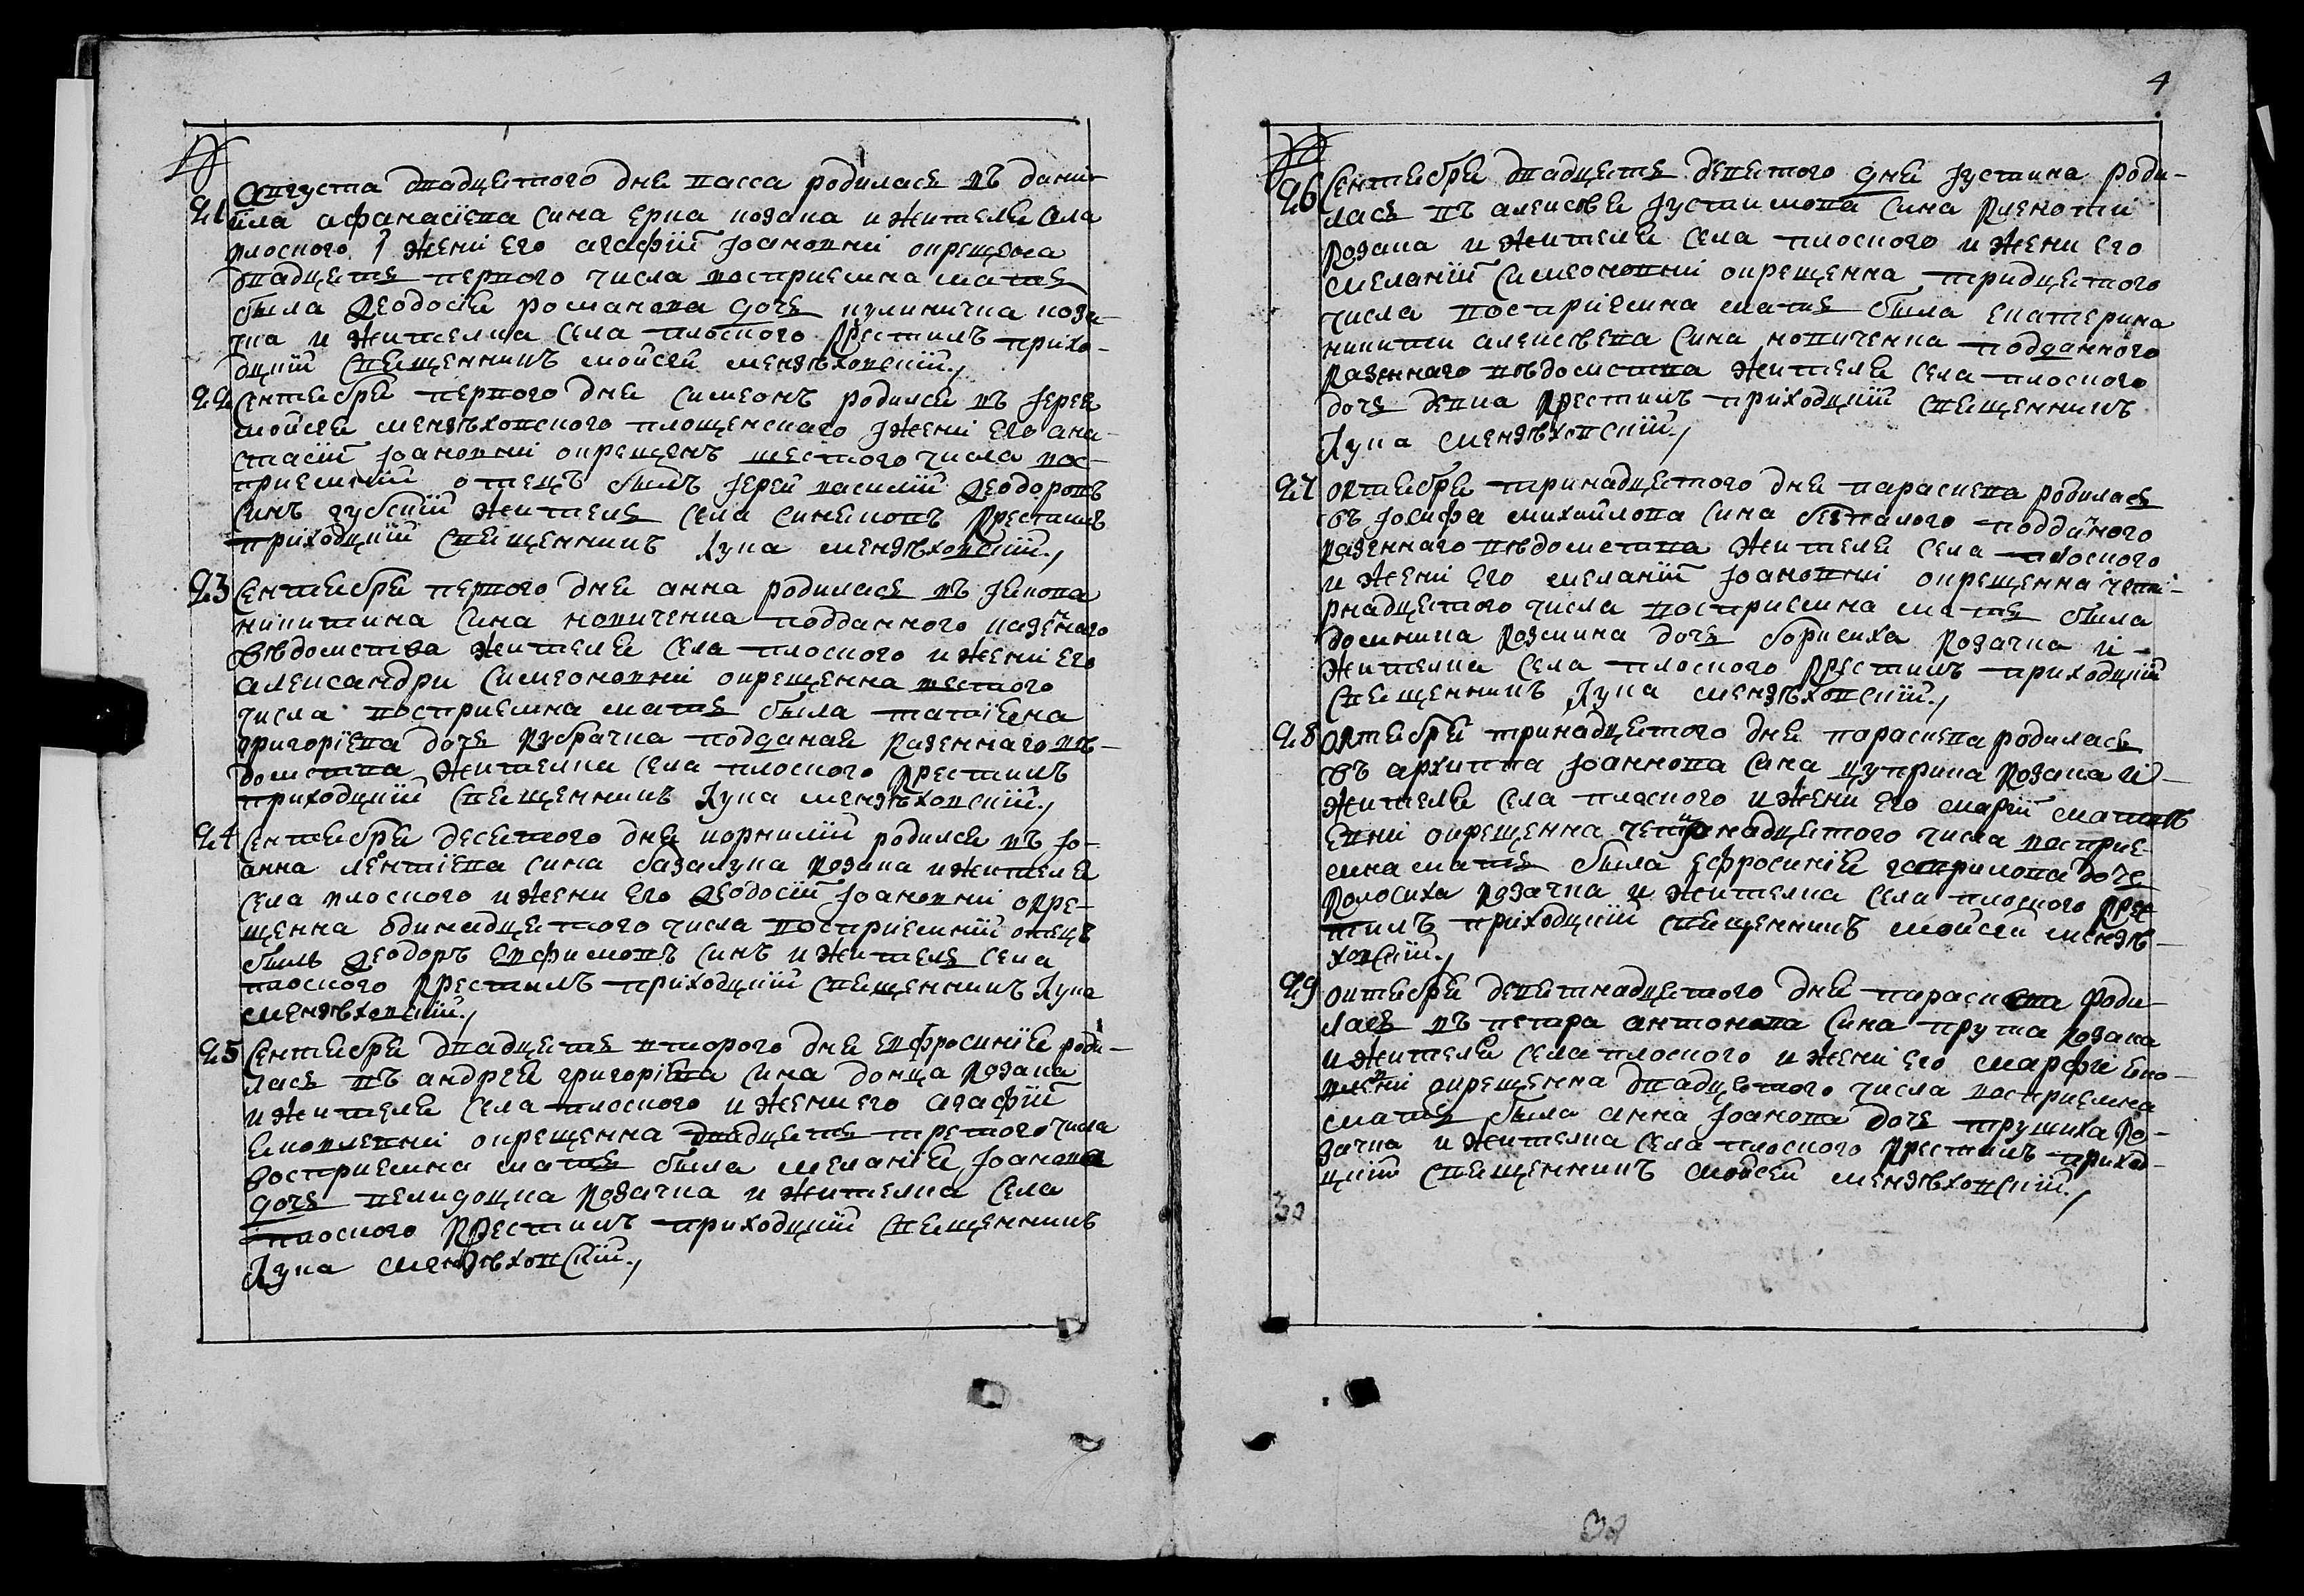 №
21 Августа двадцятого дня васса родилась въ дани-
ила афанасіева сина ерка козака и жителя села
плоского і жени его агафіи Іоановни окрещена
двадцять первого числа восприемна мать
была Ѳеодосія романова дочь кулиничка коза-
чка и жителка села плоского крестилъ прихо-
дцкій священникъ мойсей мензѣховскій
22 Сентября первого дня Симеонъ родился въ Іерея
мойсея мензѣховского площенскаго Іжени его ана-
стасіи Іоановни окрещенъ шестого числа вос-
приемній отецъ былъ Іерей василій Ѳеодоровъ
синъ житель села Синяковъ крестилъ
приходцкій священникъ Лука мензѣховскій
23 Сентября первого дня анна родилась въ Іякова
никитина сина новиченка подданного казеннаго
вѣдомства жителя села плоского и жени его
александри Симеоновни окрещенна шестого
числа восприемна мать была татіяна
григоріева дочь кубрачка подданая казеннаго вѣ-
домства жителка села плоского крестилъ
приходцкій священникъ Лука мензѣховскій
24 Сентября десятого дня корнилій родился въ Іо-
анна леонтіева сина базалука козака и жителя
села плоского и жени его Ѳеодосіи Іоановни окре-
щенна одинадцятого числа восприемній отецъ
былъ Ѳеодоръ евфимовъ синъ и житель села
плоского крестилъ приходцкій священникъ Лука
мензѣховскій
25 Сентября двадцять второго дня евфросинія роди-
лась въ андрея григоріева сина донца козака
и жителя села плоского и жени его агафіи
яковлевни окрещенна двадцять третого числа
восприемна мать была меланія Іоанова
дочь козачка и жителка села
плоского крестилъ приходцкій священникъ
Лука мензѣховскій
4
№
26 Сентября двадцять девятого дня Іустина роди-
лась въ алексѣя Іустимова сина
козака и жителя села плоского и жени его
меланіи Симеоновни окрещенна тридцятого
числа восприемна мать была екатерина
никити алексѣева сина новиченка подданного
казенного вѣдомства жителя села плоского
дочь девка крестилъ приходцкій священникъ
Лука мензѣховскій
27 октября тринадцятого дня параскева родилась
въ Іосифа михайлова сина безпалого подданого
казенного вѣдомства жителя села плоского
и жени его меланіи Іоановни окрещенна чети-
рнадцятого числа восприемна мать была
доминика козмина дочь борисиха козачка и
жителка села плоского крестилъ приходцкій
священникъ Лука мензѣховскій
28 октября тринадцятого дня параскева родилась
въ архиппа Іоаннова сина цуприка козака и
жителя села плоского и жени его маріи матѣ-
евни окрещенна четирнадцятого числа восприе-
мна мать была ефросинія гаврилова дочь
колосиха козачка и жителка села плоского кре-
стилъ приходцкій священникъ мойсей мензѣ-
ховскій
29 октября девятнадцятого дня параскева роди-
лась въ петра антонова сина прута козака
и жителя села плоского и жени его марфи яко-
влевни окрещенна двадцятого числа восприемна
мать была анна Іоанова дочь трушиха ко-
зачка и жителка села плоского крестилъ приход-
цкій священникъ мойсей мензѣховскій
30